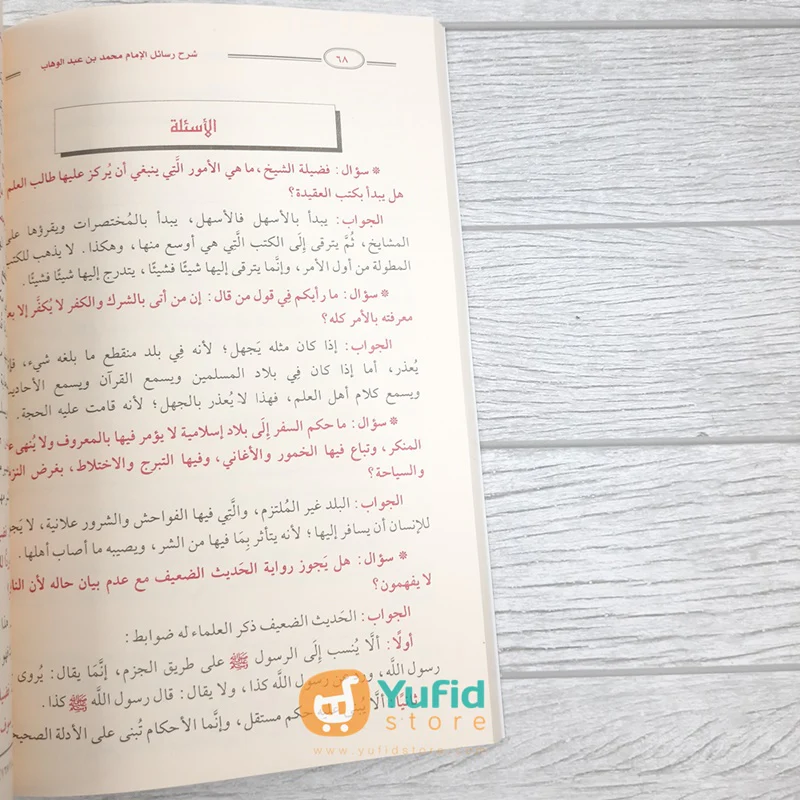 شرح رسائل الإمام محمد بن عبد الوهاب
٦٨
الأسئلة
* سؤال: فضيلة الشيخ، ما هي الأمور الَّتِي ينبغي أن يُركز عليها طالب العلم
هل يبدأ بكتب العقيدة؟
الجواب: يبدأ بالأسهل فالأسهل، يبدأ بالمُختصرات ويقرؤها
المشايخ، ثُمَّ يترقى إِلَى الكتب الَّتِي هي أوسع منها، وهكذا. لا يذهب للكتب
المطولة من أول الأمر، وإنَّما يترقى إليها شيئًا فشيئًا، يتدرج إليها شيئًا فشيئًا.
* سؤال: ما رأيكم فِي قول من قال: إن من أتى بالشرك والكفر لا يُكفَّر إلا
معرفته بالأمر كله؟
الجواب: إذا كان مثله يَجهل؛ لأنه فِي بلد منقطع ما بلغه شيء،
يُعذر، أما إذا كان فِي بلاد المسلمين ويسمع القرآن ويسمع
ويسمع كلام أهل العلم، فهذا لا يُعذر بالجهل؛ لأنه قامت عليه الحجة.
* سؤال: ما حكم السفر إِلَى بلاد إسلامية لا يؤمر فيها بالمعروف ولا يُنهى
المنكر، وتباع فيها الخمور والأغاني، وفيها التبرج والاختلاط، بغرض
والسياحة؟
الجواب: البلد غير المُلتزم، والَّتِي فيها الفواحش والشرور علانية، لا
للإنسان أن يسافر إليها؛ لأنه يتأثر بِمَا فيها من الشر، ويصيبه ما أصاب أهلها.
* سؤال: هل يَجوز رواية الحَديث الضعيف مع عدم بيان حاله لأن
لا يفهمون؟
الجواب: الحَديث الضعيف ذكر العلماء له ضوابط:
أولًا: ألَّا يُنسب إِلَى الرسول ﷺ على طريق الجزم، إنَّما يقال: يُروى
رسول اللَّه، رسول اللَّه كذا، ولا يقال: قال رسول اللَّه ﷺ كذا.
ألَّا حكم مستقل، وإنَّما الأحكام تُبنى على الأدلة الصحيحة
Yufid
store
www.yufidstore